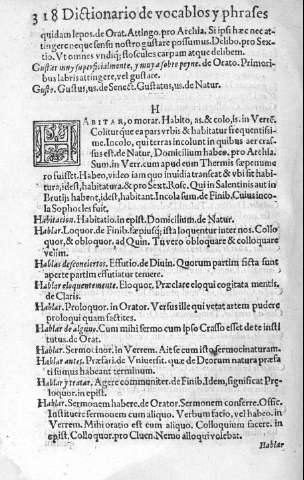 318 Dictionario de vocablos y phrases
quidam lepos. de Orat. Attingo. pro Archia. Si ipsi hæc nec at-
tingere neque sensu nostro gustare possumus. Delibo. pro Sex-
tio. Vt omnes vndiq; flosculos carpam atque delibem.
Gustar muy superficialmente, y muy a sobre peyne. de Orato. Primoribus
labris attingere, vel gustare.
Gusto. Gustus, us. de Senect. Gustatus, us. de Natur.
H
HABITAR, o morar. Habito, as. & colo, is. in Verré.
Coliturque ea pars vrbis & habitatur frequentissi-
me. Incolo, qui terras incolunt in quibus aer cras-
sus est. de Natur. Domicilium habeo. pro Archia.
Sum. in Verr. cum apud eum Thermis sæpenume
ro fuisset. Habeo, video iam quo inuidia transeat & vbi sit habi-
tura, idest, habitatura. & pro Sext. Rosc. Qui in Salentinis aut in
Brutijs habent, idest, habitant. Incola sum. de Finib. Cuius inco-
la Sophocles fuit.
Habitacion. Habitatio. in epist. Domicilium. de Natur.
Hablar. Loquor. de Finib. sæpiusq; ista loquuntur inter nos. Collo
quor, & obloquor. ad Quin. Tu vero obloquare & colloquare
velim.
Hablar desconciertos. Effutio. de Diuin. Quorum partim ficta sunt
aperte partim effutiatur temere.
Hablar eloquentemente. Eloquor. Præclare eloqui cogitata mentis.
de Claris.
Hablar. Proloquor. in Orator. Versus ille qui vetat artem pudere
proloqui quam factites.
Hablar de alguno. Cum mihi sermo cum ipso Crasso esset de te insti
tutus. de Orat.
Hablar. Sermocinor. in Verrem. Ait se cum isto sermocinaturam.
Hablar antes. Præfari. de Vniuersit. quæ de Deorum natura præfa
ti sumus habeant terminum.
Hablar y tratar. Agere communiter. de Finib. Idem, significat Pre-
loquor. in epist.
Hablar. Sermonem habere. de Orator. Sermonem conferre. Offic.
Instituere sermonem cum aliquo. Verbum facio, vel habeo. in
Verrem. Mihi oratio est cum aliquo. Colloquium facere. in
epist. Colloquor. pro Cluen. Nemo alloqui volebat.
Hablar